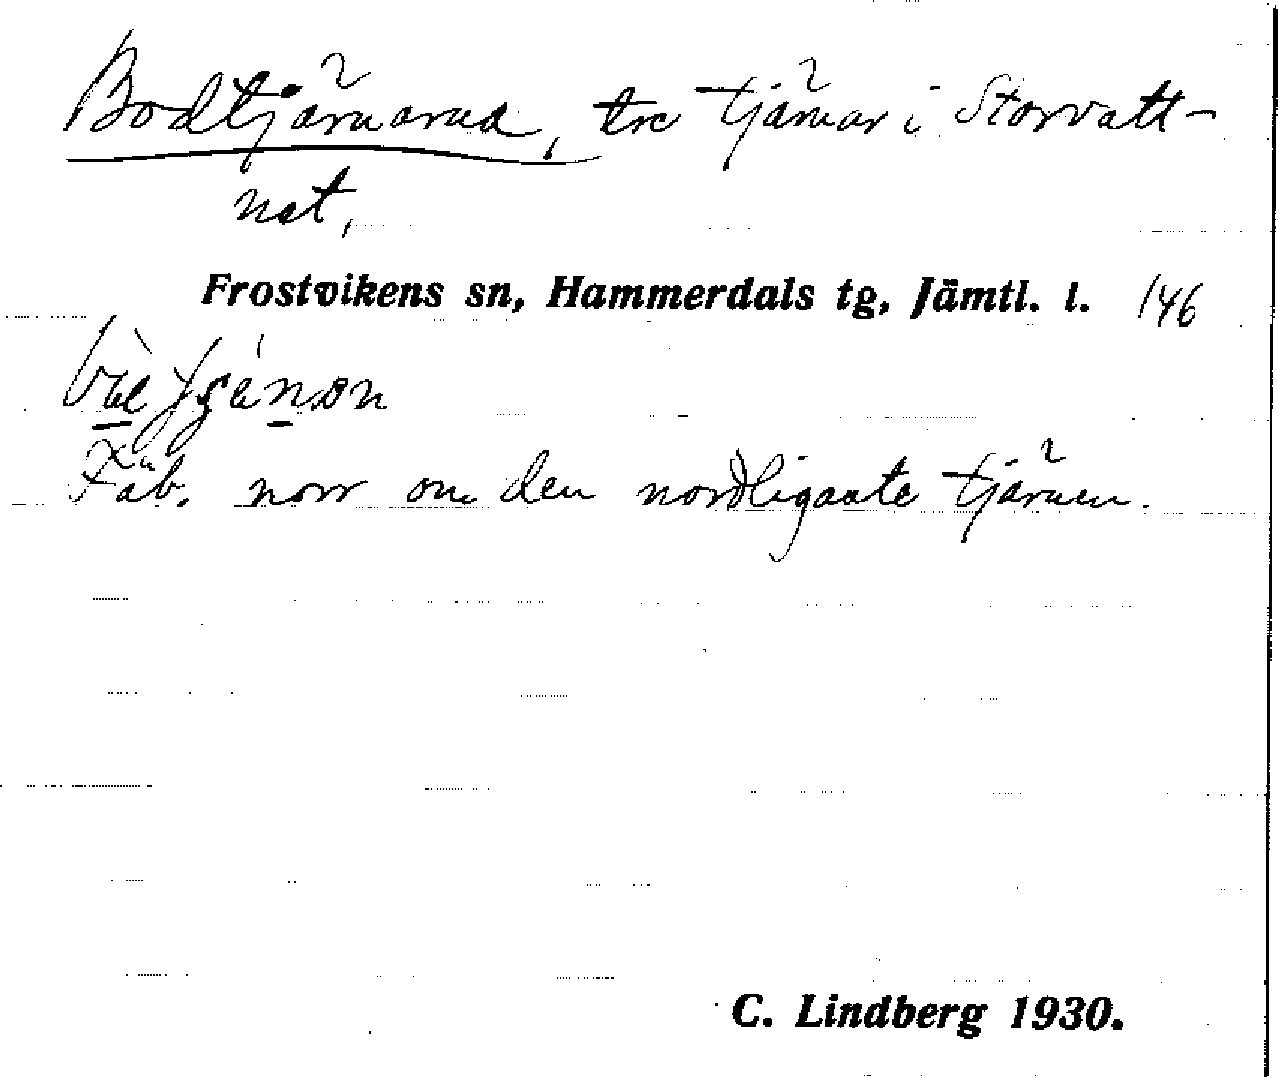 Bodtjärnarna, tre tjärnar i Storvatt-
net,
Frostvikens sn, Hammerdals tg, Jämtl. l. 146
Fäb. norr om den nordligaste tjärnen.
C. Lindberg 1930.